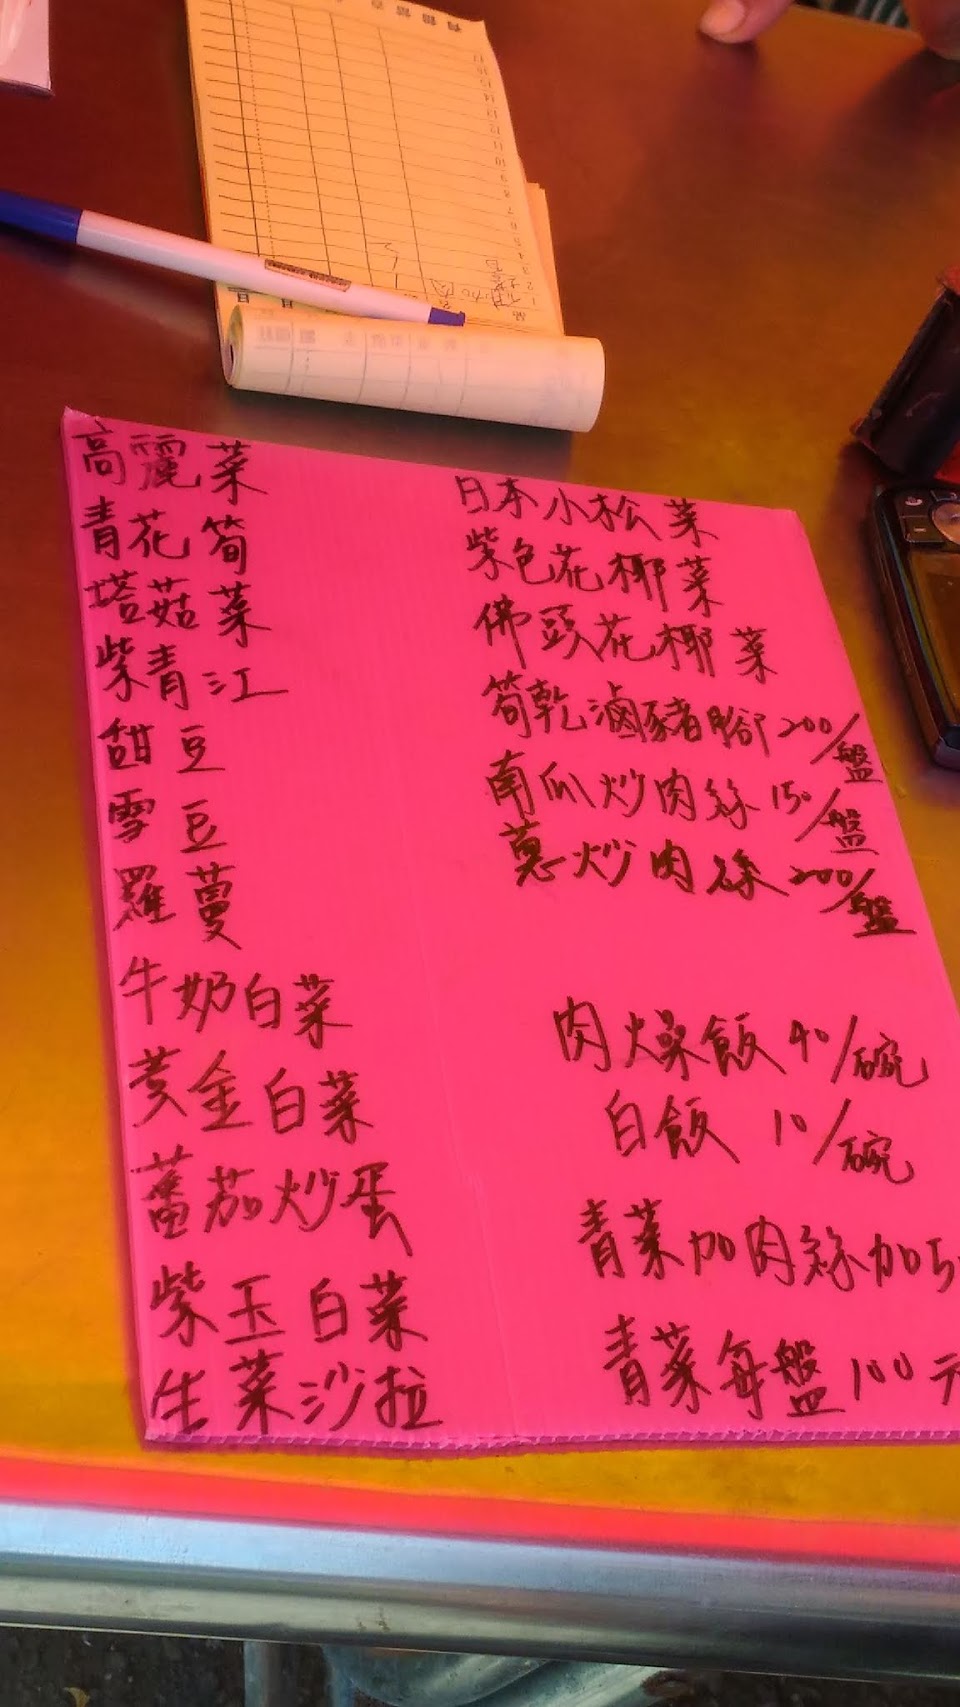 高麗菜
青花筍
塔菇菜
紫青江
甜豆
雪豆
羅蔓
牛奶白菜
黃金白菜
蕃茄炒蛋
紫玉白菜
生菜沙拉
日本小松菜
紫色花椰菜
佛頭花椰菜
筍乾滷豬腳200/盤
南瓜炒肉絲150/盤
蔥炒肉絲200/盤
肉燥飯40/碗
白飯10/碗
青菜加肉絲加5
青菜每盤100元